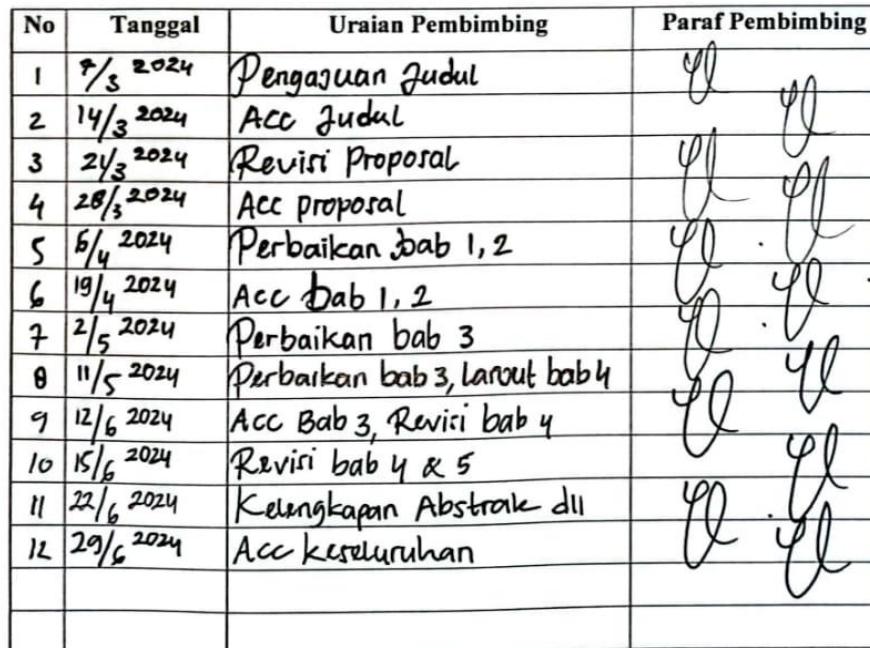 No Tanggal Uraian Pembimbing Paraf Pembimbing
1 7/3 2024 Pengajuan Judul
2 14/3 2024 Acc Judul
3 21/3 2024 Revisi Proposal
4 28/3 2024 Acc proposal
5 6/4 2024 Perbaikan bab 1, 2
6 19/4 2024 Acc bab 1, 2
7 2/5 2024 Perbaikan bab 3
8 11/5 2024 Perbaikan bab 3, Lanjut bab 4
9 12/6 2024 Acc Bab 3, Revisi bab 4
10 15/6 2024 Revisi bab 4 & 5
11 22/6 2024 Kelengkapan Abstrak dll
12 29/6 2024 Acc keseluruhan